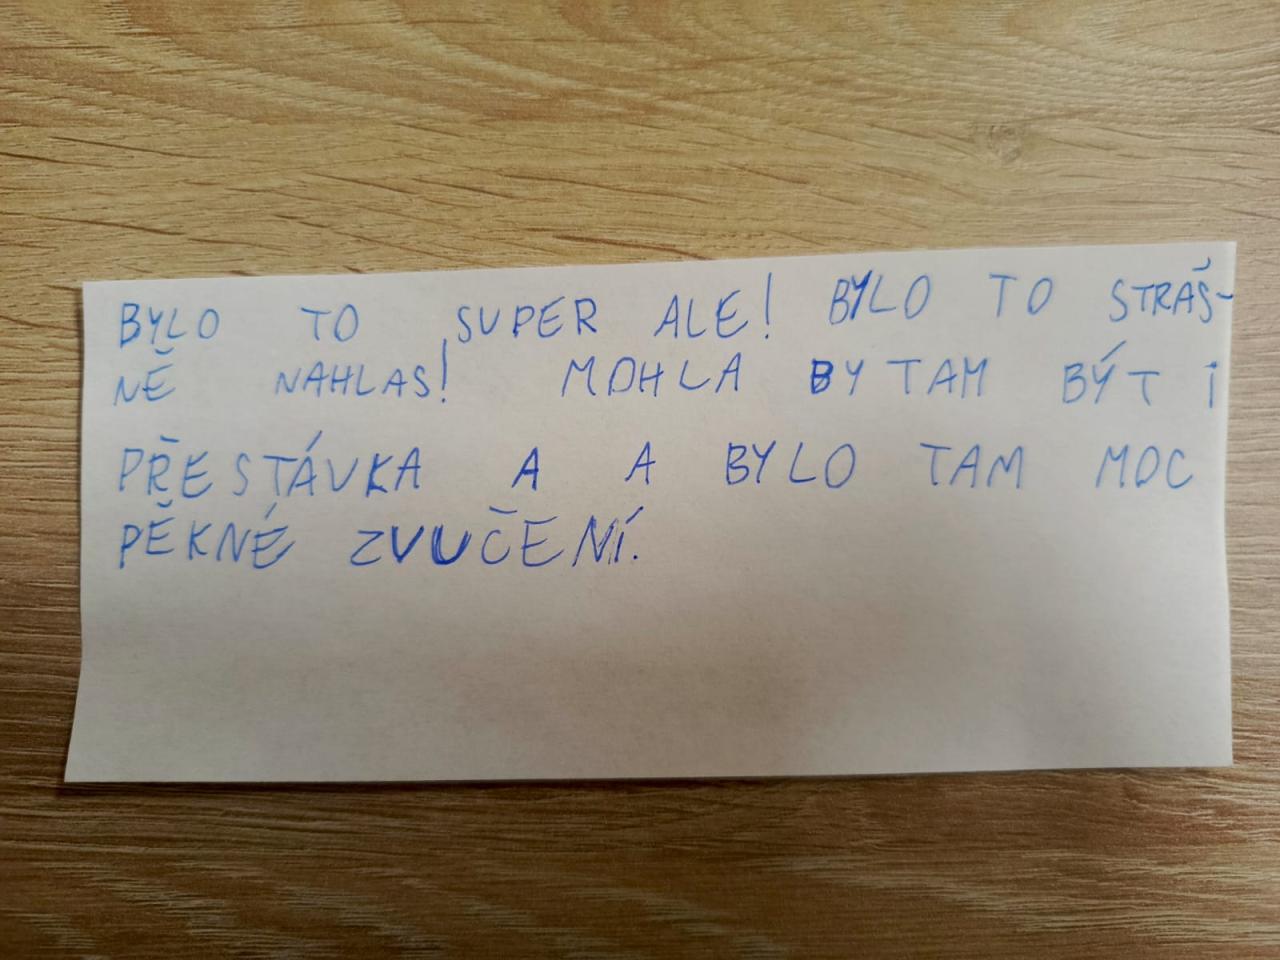 BYLO TO SUPER ALE! BYLO TO STRAŠ-
NĚ NAHLAS! MOHLA BY TAM BÝT I
PŘESTÁVKA A A BYLO TAM MOC
PĚKNÉ ZVUČENÍ.